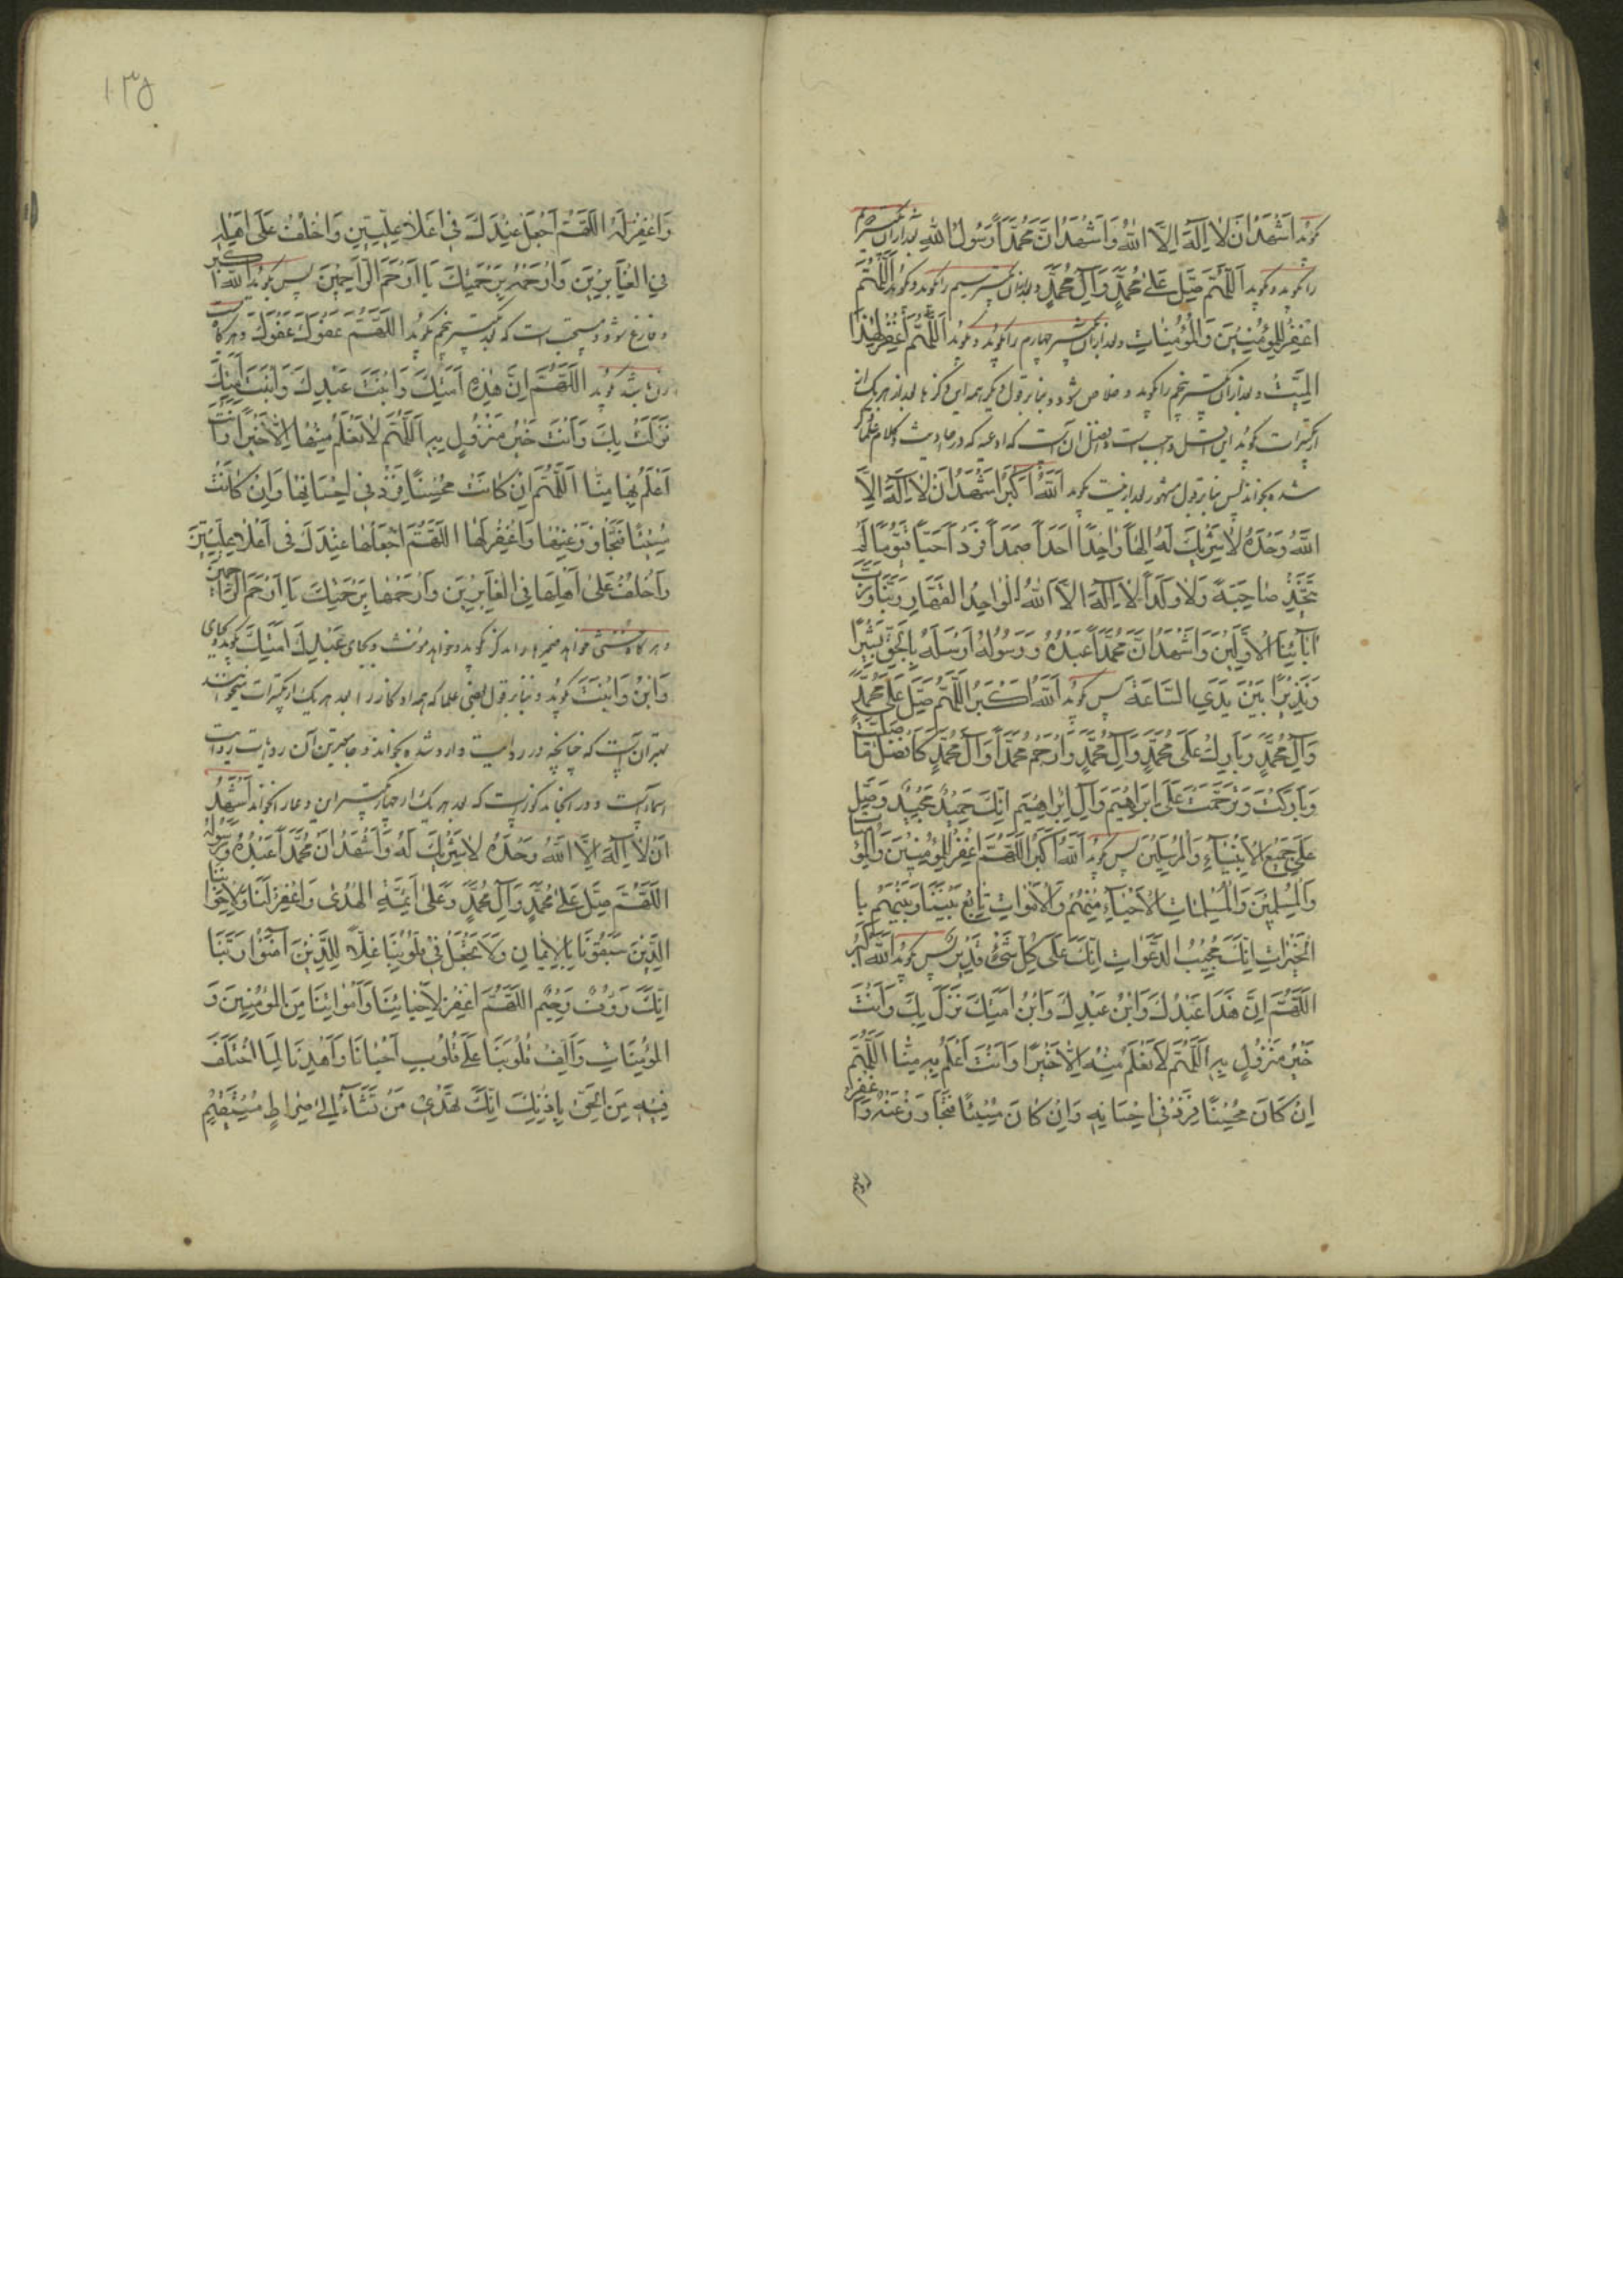 گوید اشهد ان لا اله الا الله و اشهد ان محمدا رسول الله بعد از آن تکبیر دویم
را گوید و گوید اَللّهُمَّ صَلِّ عَلی مُحَمَّدٍ وَآلِ مُحَمَّدٍ و بعد از آن تکبیر سیم را گوید و گوید اَللّهُمَّ
اغْفِرْ لِلْمُؤْمِنینَ وَالْمُؤْمِناتِ و بعد از آن تکبیر چهارم را گوید و گوید اَللّهُمَّ اغْفِرْ لِهذَا
الْمَیِّتِ و بعد از آن تکبیر پنجم را گوید و خلاص شود و بنا بر قول دیگر همه این ذکرها بعد از هر یک از
تکبیرات گوید این اقل واجب است و افضل آن است که ادعیه که در احادیث و کلام علما ذکر
شده بخواند پس بنا بر قول مشهور بعد از نیت گوید اَللهُ اَکْبَرُ اَشْهَدُ اَنْ لا اِلهَ اِلاَّ
اللهُ وَحْدَهُ لا شَرِیكَ لَهُ اِلهًا واحِدًا اَحَدًا صَمَدًا فَرْدًا حَیًّا قَیُّومًا لَمْ
یَتَّخِذْ صاحِبَةً وَلا وَلَدًا لا اِلهَ اِلاَّ اللهُ الْواحِدُ الْقَهّارُ رَبُّنا وَرَبُّ
آبائِنَا الْاَوَّلینَ وَاَشْهَدُ اَنَّ مُحَمَّدًا عَبْدُهُ وَرَسُولُهُ اَرْسَلَهُ بِالْحَقِّ بَشیرًا
وَنَذیرًا بَیْنَ یَدَیِ السّاعَةِ پس گوید اَللهُ اَکْبَرُ اَللّهُمَّ صَلِّ عَلی مُحَمَّدٍ
وَآلِ مُحَمَّدٍ وَبارِكْ عَلی مُحَمَّدٍ وَآلِ مُحَمَّدٍ وَارْحَمْ مُحَمَّدًا وَآلَ مُحَمَّدٍ کَاَفْضَلِ ما صَلَّیْتَ
وَبارَکْتَ وَتَرَحَّمْتَ عَلی اِبْراهیمَ وَآلِ اِبْراهیمَ اِنَّكَ حَمیدٌ مَجیدٌ وَصَلِّ
عَلی جَمیعِ الْاَنْبِیاءِ وَالْمُرْسَلینَ پس گوید اَللهُ اَکْبَرُ اَللّهُمَّ اغْفِرْ لِلْمُؤْمِنینَ وَالْمُؤْمِناتِ
وَالْمُسْلِمینَ وَالْمُسْلِماتِ الْاَحْیاءِ مِنْهُمْ وَالْاَمْواتِ تابِعْ بَیْنَنا وَبَیْنَهُمْ بِا
لْخَیْراتِ اِنَّكَ مُجیبُ الدَّعَواتِ اِنَّكَ عَلی کُلِّ شَیْءٍ قَدیرٌ پس گوید اَللهُ اَکْبَرُ
اَللّهُمَّ اِنَّ هَذا عَبْدُكَ وَابْنُ عَبْدِكَ وَابْنُ اَمَتِكَ نَزَلَ بِكَ وَاَنْتَ
خَیْرُ مَنْزُولٍ بِهِ اَللّهُمَّ لا نَعْلَمُ مِنْهُ اِلاَّ خَیْرًا وَاَنْتَ اَعْلَمُ بِهِ مِنّا اَللّهُمَّ
اِنْ کانَ مُحْسِنًا فَزِدْ فی اِحْسانِهِ وَاِنْ کانَ مُسیئًا فَتَجاوَزْ عَنْهُ وَاغْفِرْ
۱۳۵
وَاغْفِرْ لَهُ اَللّهُمَّ اجْعَلْهُ عِنْدَكَ فی اَعْلا عِلِّیّینَ وَاخْلُفْ عَلی اَهْلِهِ
فِی الْغابِرینَ وَارْحَمْهُ بِرَحْمَتِكَ یا اَرْحَمَ الرّاحِمینَ پس گوید اَللهُ اَکْبَرُ
و فارغ شود و مستحب است که بعد از تکبیر پنجم بگوید اَللّهُمَّ عَفْوَكَ عَفْوَكَ و هر گاه میت
زن باشد گوید اَللّهُمَّ اِنَّ هذِهِ اَمَتُكَ وَابْنَتُ عَبْدِكَ وَابْنَتُ اَمَتِكَ
نَزَلَتْ بِكَ وَاَنْتَ خَیْرُ مَنْزُولٍ بِهِ اَللّهُمَّ لا نَعْلَمُ مِنْها اِلاَّ خَیْرًا وَاَنْتَ
اَعْلَمُ بِها مِنّا اَللّهُمَّ اِنْ کانَتْ مُحْسِنًا فَزِدْ فی اِحْسانِها وَاِنْ کانَتْ
مُسیئًا فَتَجاوَزْ عَنْها وَاغْفِرْ لَها اَللّهُمَّ اجْعَلْها عِنْدَكَ فی اَعْلا عِلِّیّینَ
وَاخْلُفْ عَلی اَهْلِها فِی الْغابِرینَ وَارْحَمْها بِرَحْمَتِكَ یا اَرْحَمَ الرّاحِمینَ
و هر گاه خواهد ضمیرها را مذکر گوید و خواهد مؤنث و بجای عَبْدِكَ اَمَتِكَ گوید و بجای
وَابْنُ وَابْنَتُ گوید و بنا بر قول بعضی علما که همه اذکار را بعد هر یک از تکبیرات میخوانند
بهتر آن است که چنانچه در روایت وارد شده بخواند و جامعترین آن روایات روایت
سماعه است و در آنجا مذکور است که بعد هر یک از چهار تکبیر این دعا را بخواند اَشْهَدُ
اَنْ لا اِلهَ اِلاَّ اللهُ وَحْدَهُ لا شَرِیكَ لَهُ وَاَشْهَدُ اَنَّ مُحَمَّدًا عَبْدُهُ وَرَسُولُهُ
اَللّهُمَّ صَلِّ عَلی مُحَمَّدٍ وَآلِ مُحَمَّدٍ وَعَلی اَئِمَّةِ الْهُدی وَاغْفِرْ لَنا وَلِاِخْوانِنَا
الَّذینَ سَبَقُونا بِالْاِیمانِ وَلا تَجْعَلْ فی قُلُوبِنا غِلاًّ لِلَّذینَ آمَنُوا رَبَّنا
اِنَّكَ رَؤُفٌ رَحیمٌ اَللّهُمَّ اغْفِرْ لِاَحْیائِنا وَاَمْواتِنا مِنَ الْمُؤْمِنینَ وَ
الْمُؤْمِناتِ وَاَلِّفْ قُلُوبَنا عَلی قُلُوبِ اَخْیارِنا وَاهْدِنا لِمَا اخْتُلِفَ
فیهِ مِنَ الْحَقِّ بِاِذْنِكَ اِنَّكَ تَهْدی مَنْ تَشاءُ اِلی صِراطٍ مُسْتَقیمٍ